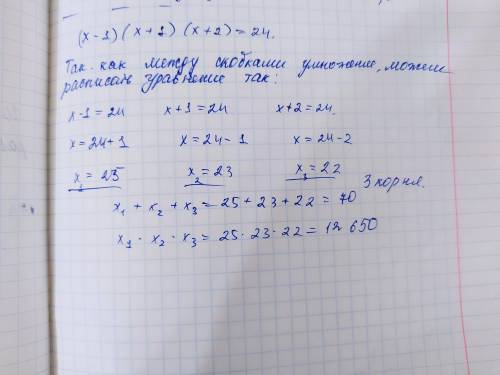 (x-1)(x+1)(x+2)=24.
Так как между скобками умножение, можем
расписать уравнение так:
x-1=24 x+1=24 x+2=24.
x=24+1 x=24-1 x=24-2
x₁=25 x₂=23 x₃=22
3 корня.
x₁+x₂+x₃=25+23+22=70
x₁·x₂·x₃=25·23·22=12 650